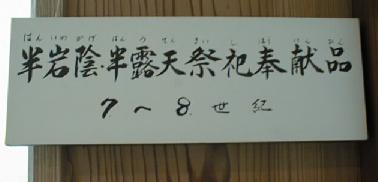 はん いわ かげ はん ろ てん さい し ほう けん ひん
半岩陰・半露天祭祀奉献品
7〜8世紀